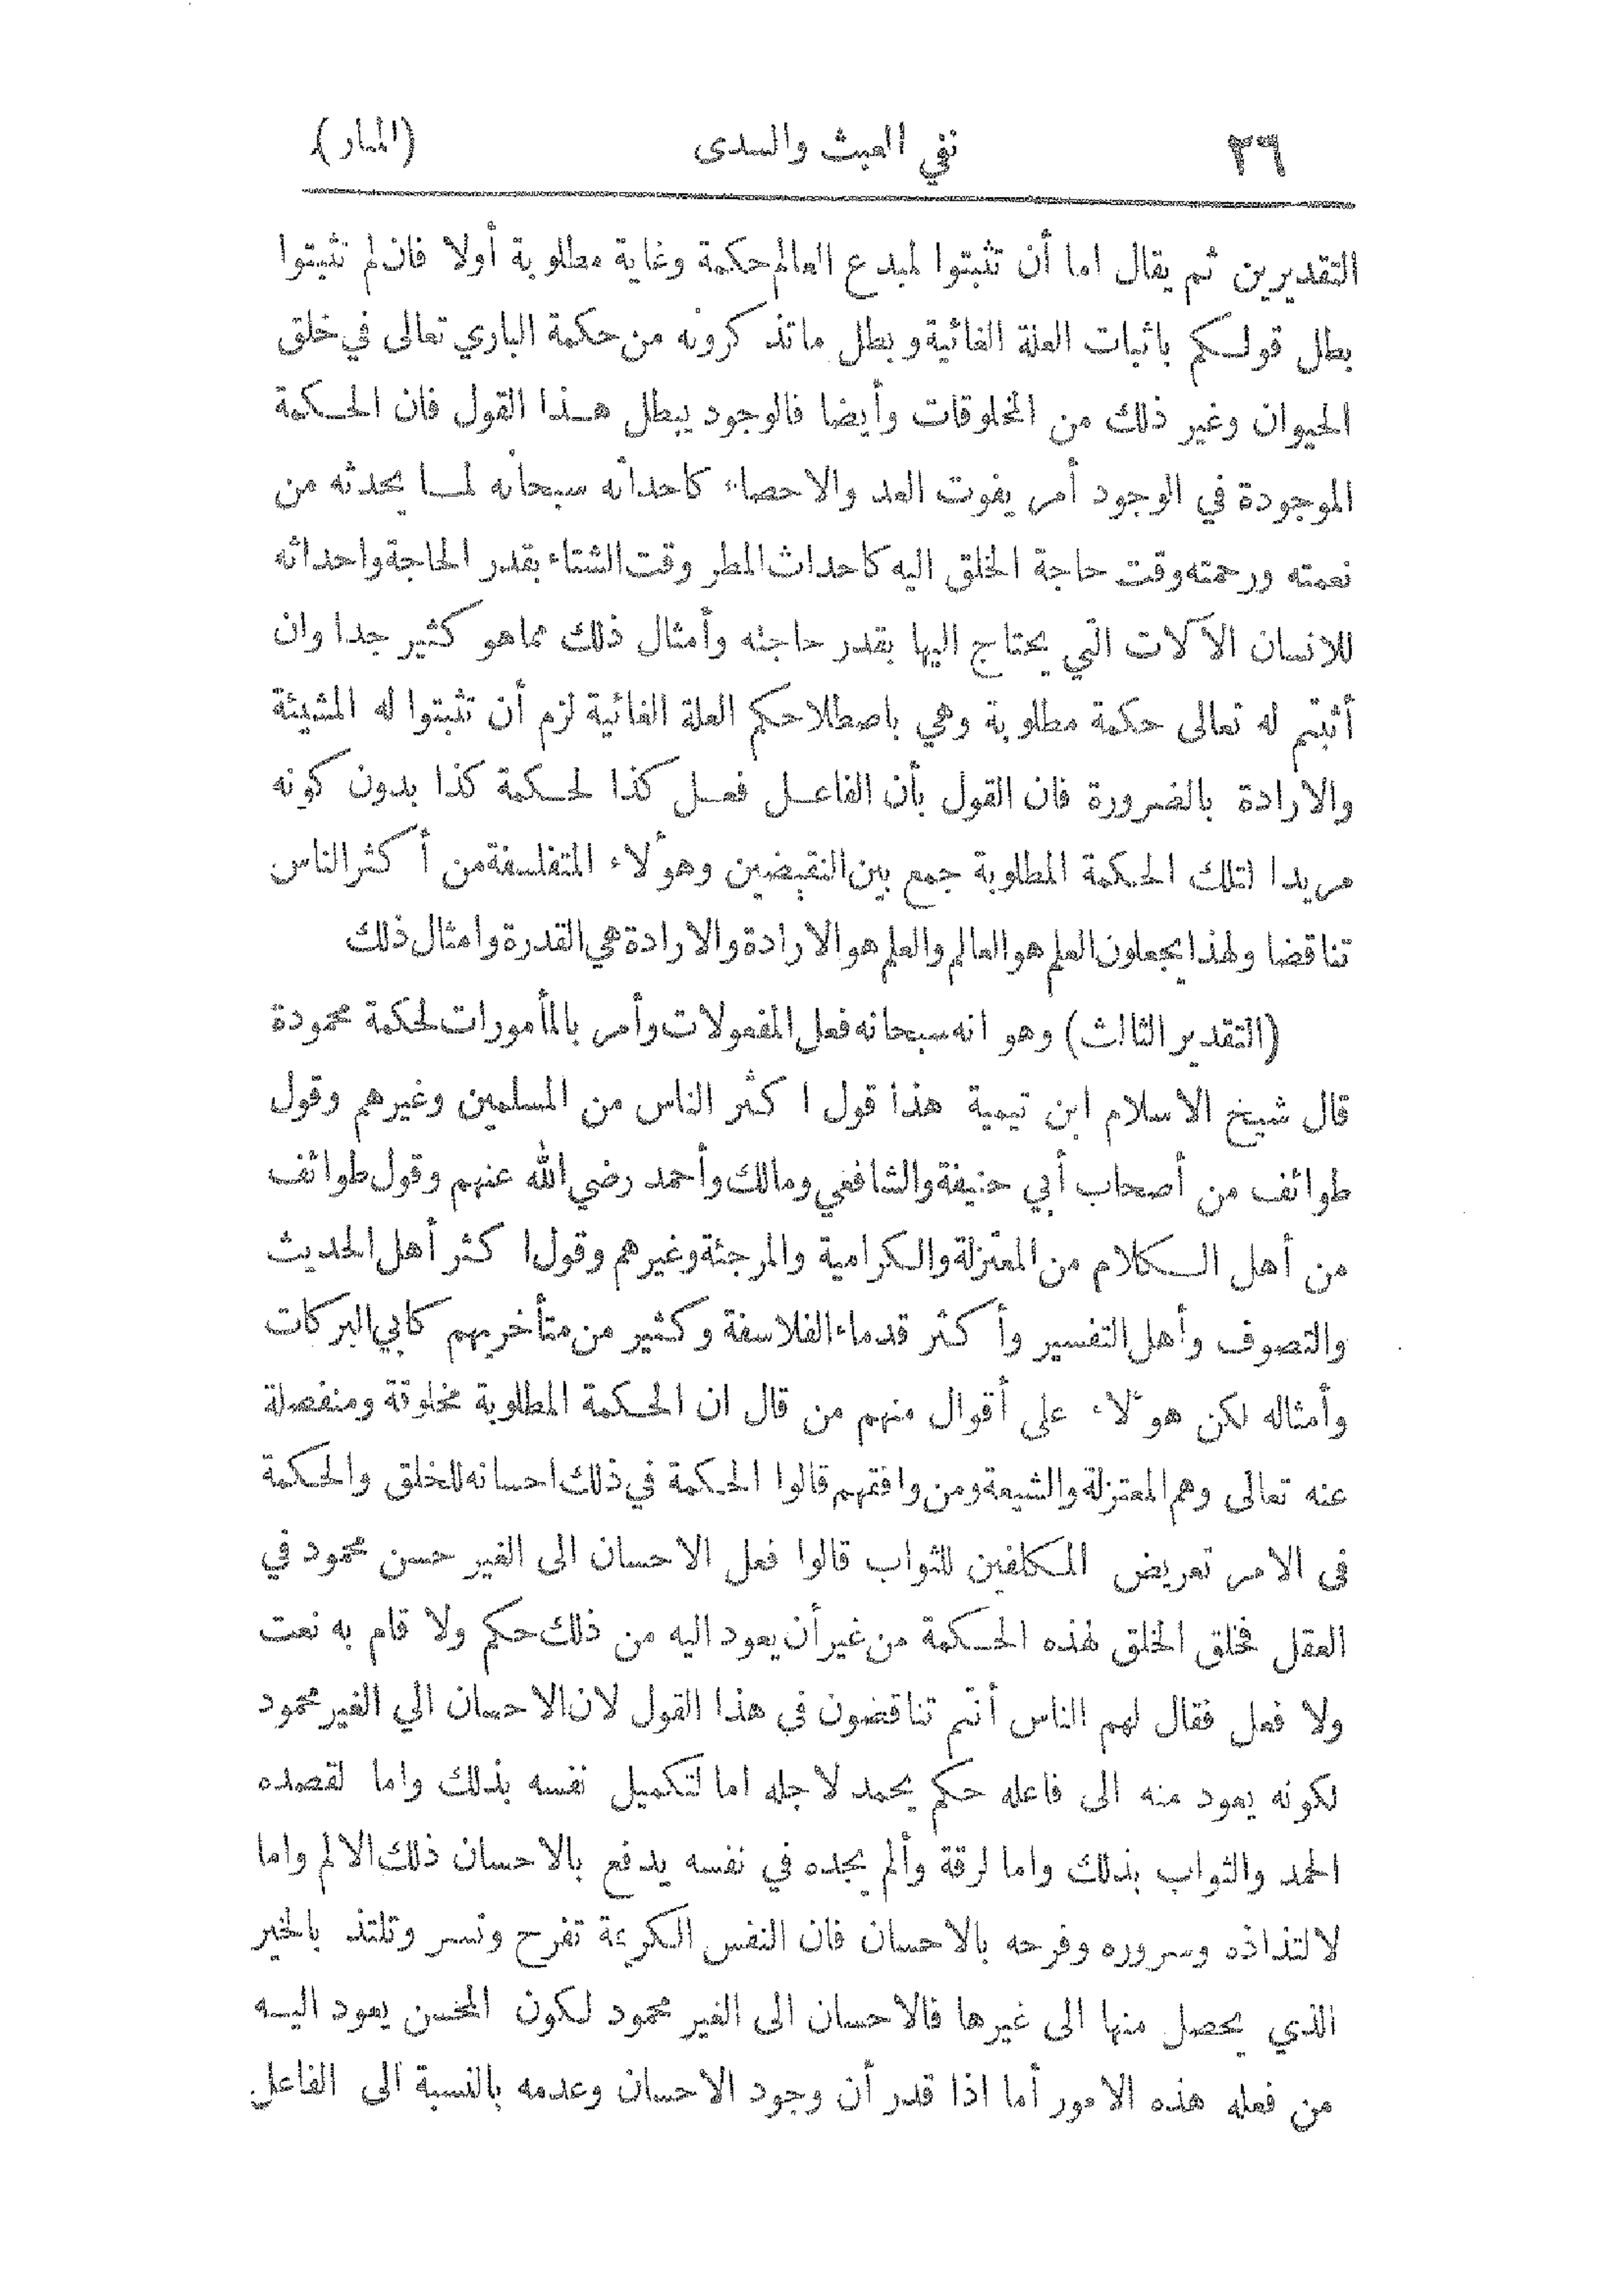 ٣٦ نفي العبث والسدى (المنار)
التقديرين ثم يقال اما أن تثبتوا لمبدع العالم حكمة وغاية مطلوبة أولا فان لم تثبتوا
بطل قولكم باثبات العلة الغائية وبطل ما تذكرونه من حكمة الباري تعالى في خلق
الحيوان وغير ذلك من المخلوقات وأيضا فالوجود يبطل هذا القول فان الحكمة
الموجودة في الوجود أمر يفوت العد والاحصاء كاحداثه سبحانه لما يحدثه من
نعمته ورحمته وقت حاجة الخلق اليه كاحداث المطر وقت الشتاء بقدر الحاجة واحداثه
للانسان الآلات التي يحتاج اليها بقدر حاجته وأمثال ذلك مما هو كثير جدا وان
أثبتم له تعالى حكمة مطلوبة وهي باصطلاحكم العلة الغائية لزم أن تثبتوا له المشيئة
والارادة بالضرورة فان القول بأن الفاعل فعل كذا لحكمة كذا بدون كونه
مريدا لتلك الحكمة المطلوبة جمع بين النقيضين وهؤلاء المتفلسفة من أكثر الناس
تناقضا ولهذا يجعلون العلم هو العالم والعلم هو الارادة والارادة هي القدرة وامثال ذلك
(التقدير الثالث) وهو انه سبحانه فعل المفعولات وأمر بالمأمورات لحكمة محمودة
قال شيخ الاسلام ابن تيمية هذا قول اكثر الناس من المسلمين وغيرهم وقول
طوائف من أصحاب أبي حنيفة والشافعي ومالك وأحمد رضي الله عنهم وقول طوائف
من أهل الكلام من المعتزلة والكرامية والمرجئة وغيرهم وقول اكثر أهل الحديث
والتصوف وأهل التفسير وأكثر قدماء الفلاسفة وكثير من متأخريهم كابي البركات
وأمثاله لكن هؤلاء على أقوال منهم من قال ان الحكمة المطلوبة مخلوقة ومنفصلة
عنه تعالى وهم المعتزلة والشيعة ومن وافقهم قالوا الحكمة في ذلك احسانه للخلق والحكمة
في الامر تعريض المكلفين للثواب قالوا فعل الاحسان الى الغير حسن محمود في
العقل فخلق الخلق لهذه الحكمة من غير أن يعود اليه من ذلك حكم ولا قام به نعت
ولا فعل فقال لهم الناس أنتم تناقضون في هذا القول لان الاحسان الي الغير محمود
لكونه يعود منه الى فاعله حكم يحمد لاجله اما لتكميل نفسه بذلك واما لقصده
الحمد والثواب بذلك واما لرقة وألم يجده في نفسه يدفع بالاحسان ذلك الالم واما
لالتذاذه وسروره وفرحه بالاحسان فان النفس الكريمة تفرح وتسر وتلتذ بالخير
الذي يحصل منها الى غيرها فالاحسان الى الغير محمود لكون المحسن يعود اليه
من فعله هذه الامور أما اذا قدر أن وجود الاحسان وعدمه بالنسبة الى الفاعل